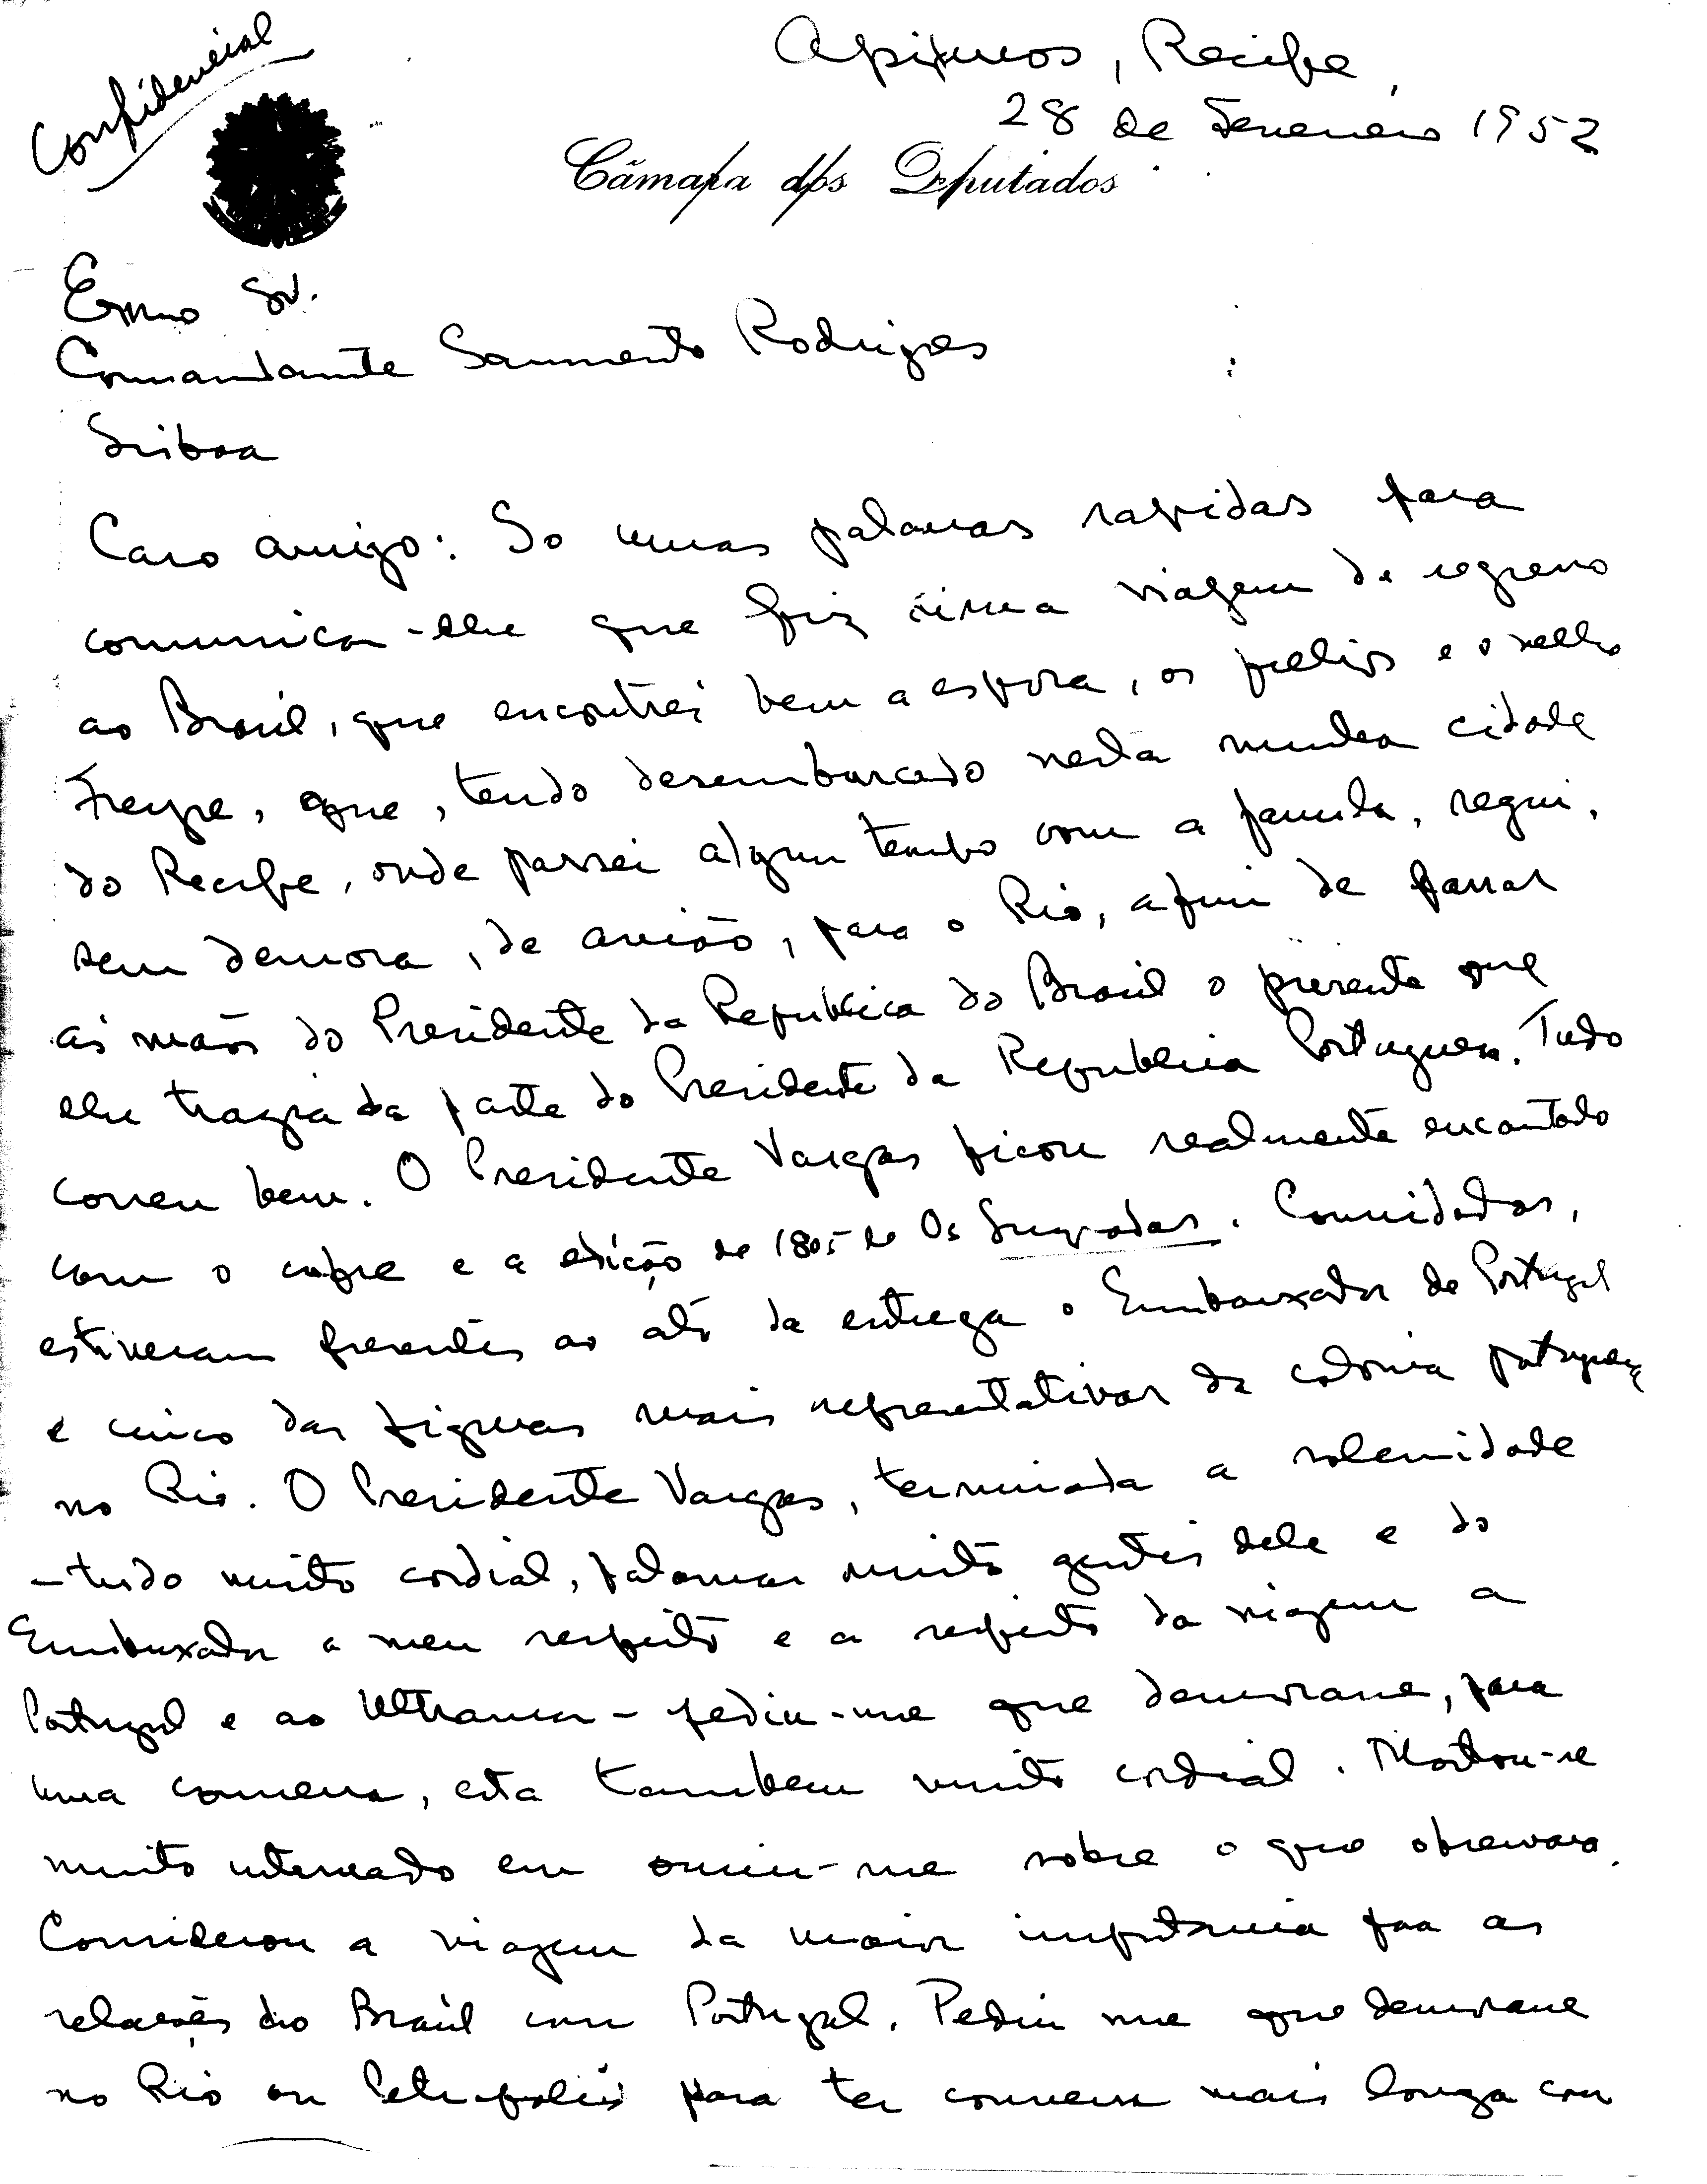 Confidencial
Apipucos, Recife,
28 de Fevereiro 1952
Câmara dos Deputados
Exmo Sr.
Comandante Sarmento Rodrigues
Lisboa
Caro amigo: So umas palavras rapidas para
comunicar-lhe que fiz ótima viagem de regresso
ao Brasil, que encontrei bem a esposa, os filhos e o velho
Freyre, que, tendo desembarcado nesta minha cidade
do Recife, onde passei algum tempo com a familia, segui,
sem demora, de avião, para o Rio, afim de passar
ás mãos do Presidente da Republica do Brasil o presente que
lhe trazia da parte do Presidente da Republica Portuguesa. Tudo
correu bem. O Presidente Vargas ficou realmente encantado
com o cofre e a edição de 1805 de Os Lusiadas. Convidados,
estiveram presentes ao ato da entrega o Embaixador de Portugal
e cinco das figuras mais representativas da colonia portuguesa
no Rio. O Presidente Vargas, terminada a solenidade
- tudo muito cordial, palavras muito gentis dele e do
Embaixador a meu respeito e a respeito da viagem a
Portugal e ao Ultramar - pediu-me que demorasse, para
uma conversa, esta tambem muito cordial. Mostrou-se
muito interessado em ouvir-me sobre o que observara.
Considerou a viagem da maior importancia para as
relações do Brasil com Portugal. Pediu me que demorasse
no Rio ou Petropolis para ter conversa mais longa com